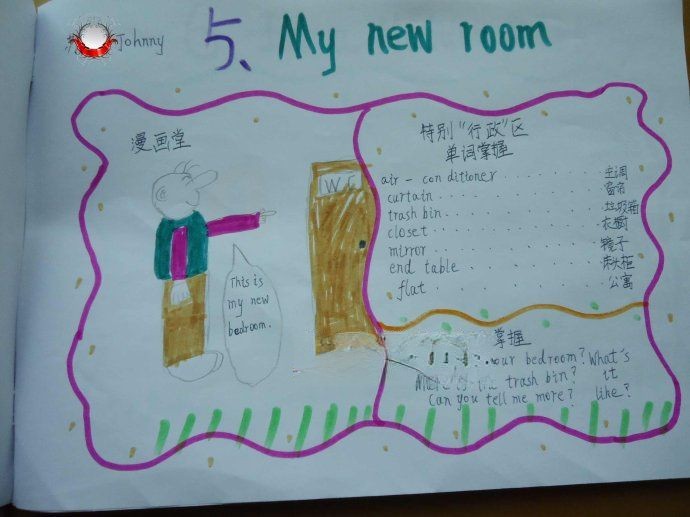 Johnny
5、My new room
漫画堂
W C
This is
my new
bedroom.
特别“行政”区
单词掌握
air-conditioner 空调
curtain 窗帘
trash bin 垃圾箱
closet 衣橱
mirror 镜子
end table 床头柜
flat 公寓
掌握
your bedroom? What's
the trash bin? it
Can you tell me more? like?